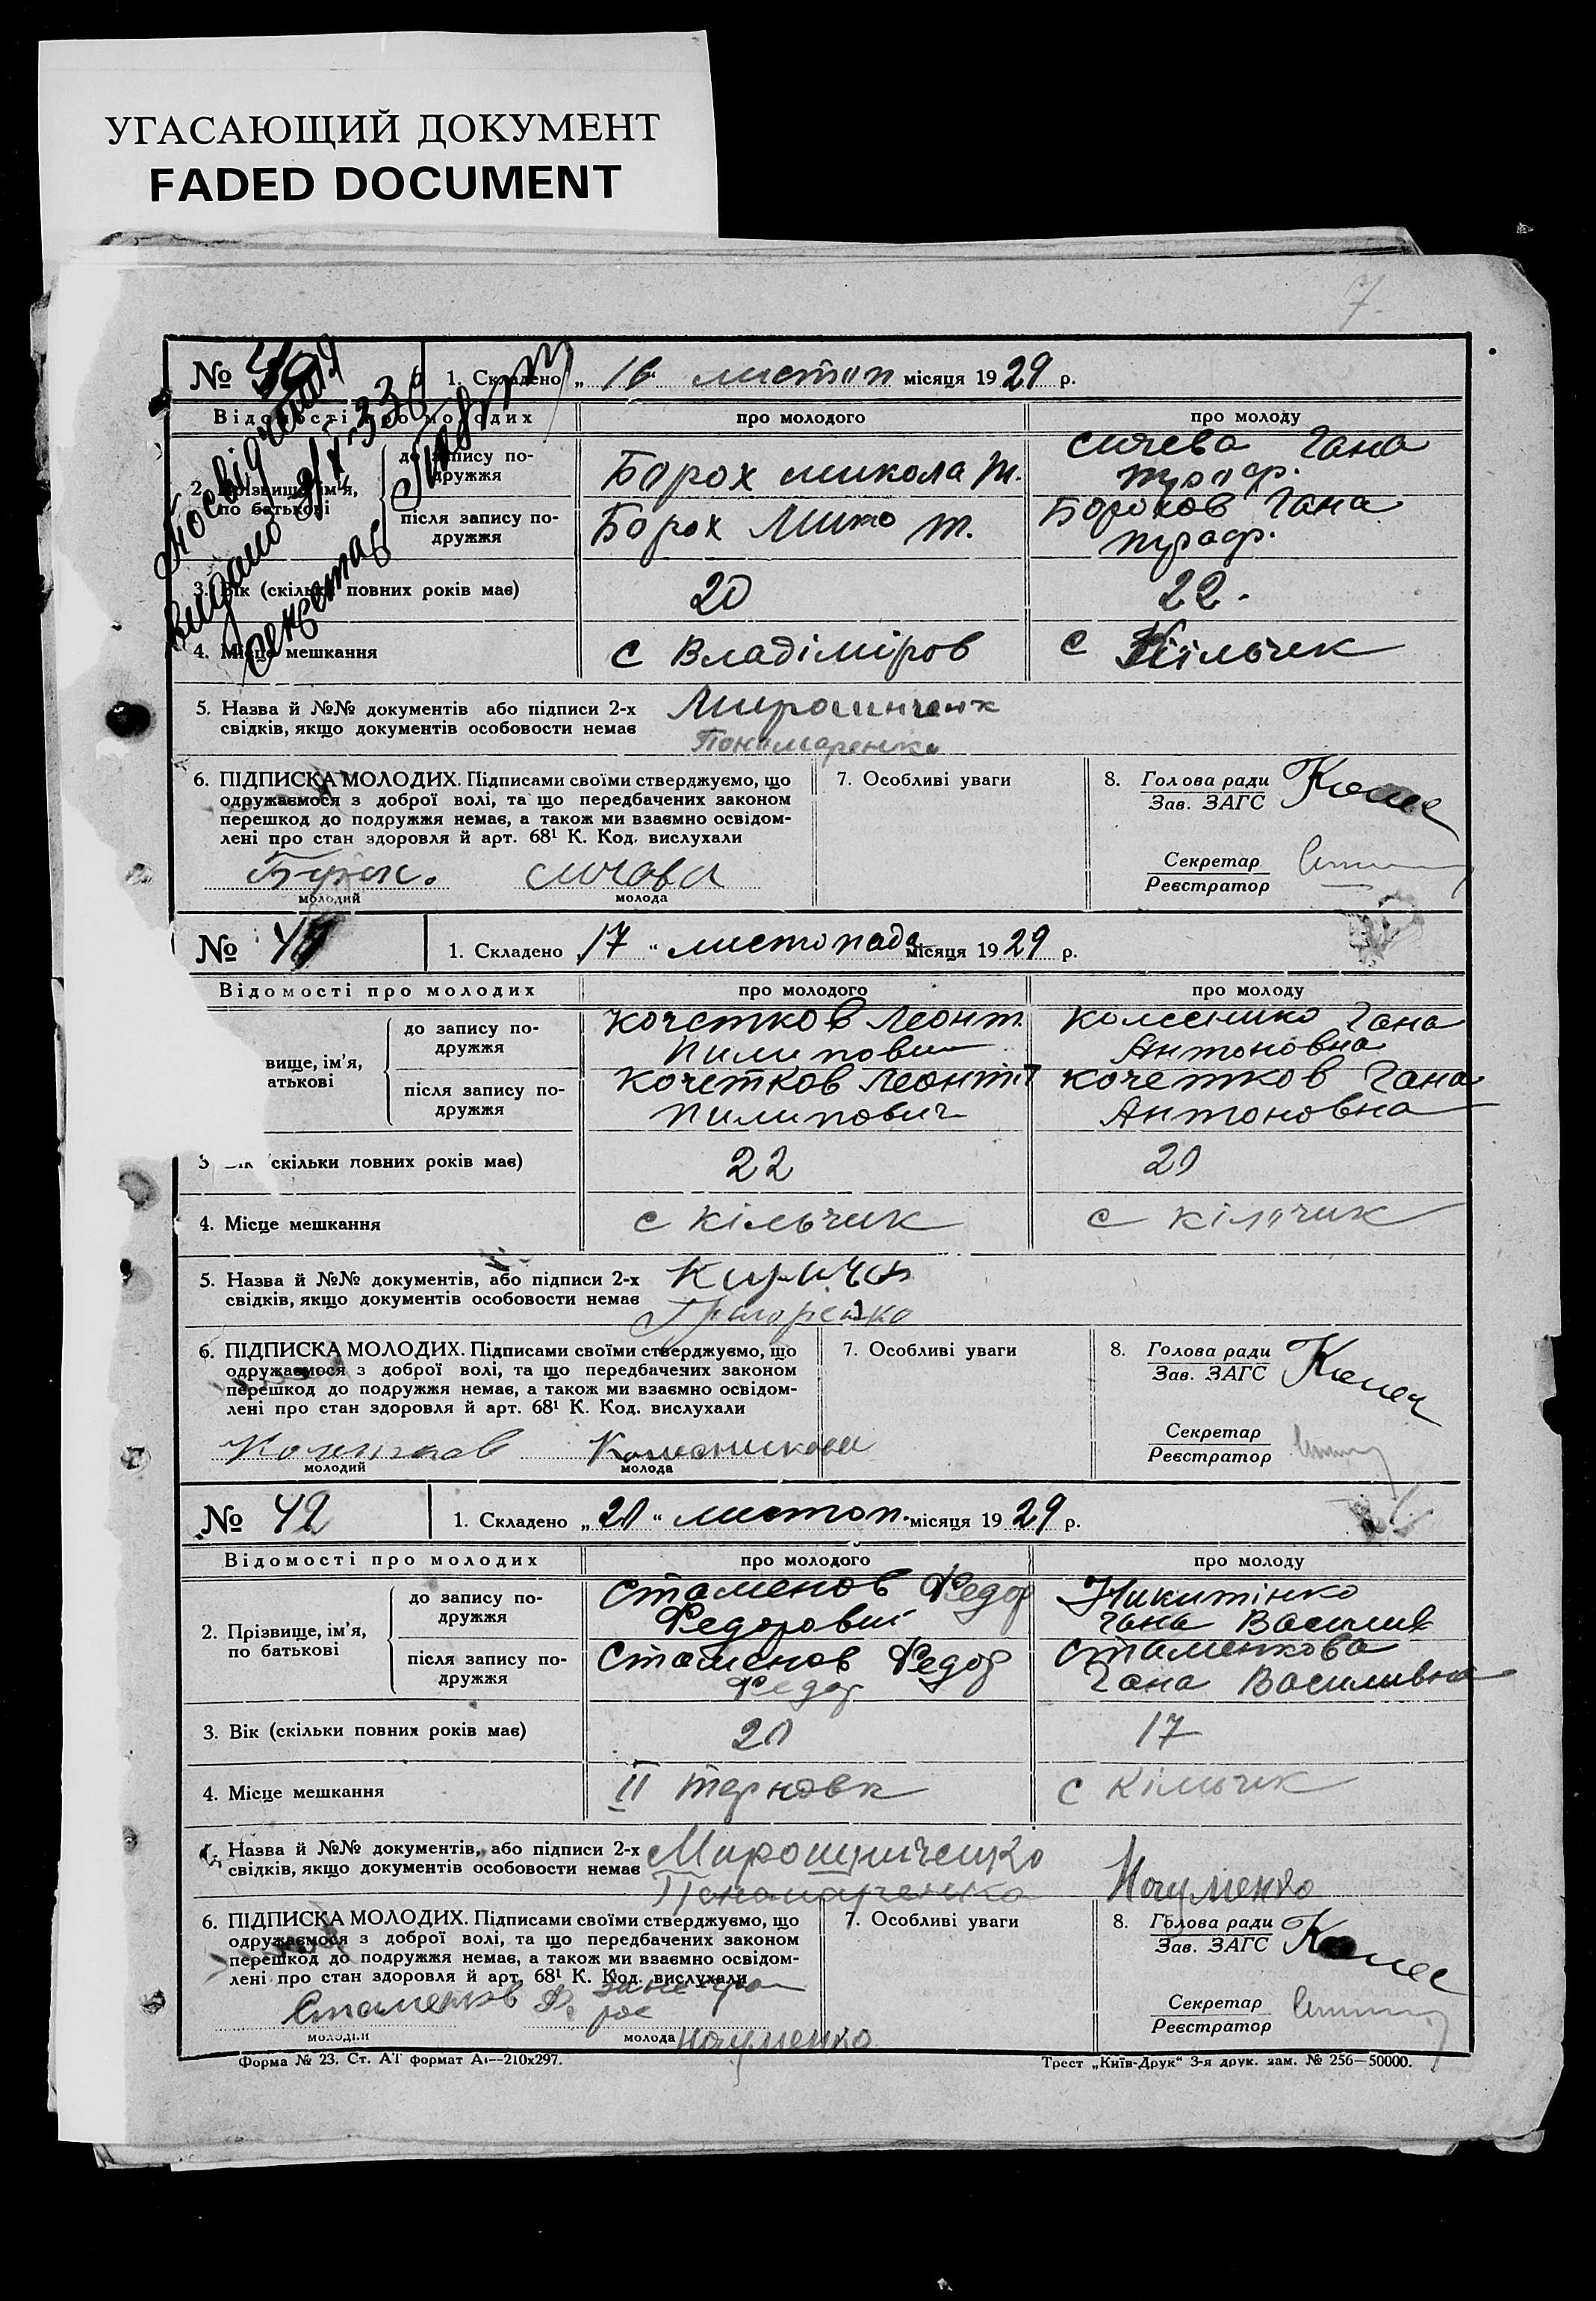 УГАСАЮЩИЙ ДОКУМЕНТ
FADED DOCUMENT
7.
№ 40
1. Складено „ 16 " листоп місяця 1929 р.
Відомості про молодих
про молодого
про молоду
2. Прізвище, ім'я, по батькові
до запису по-
дружжя
Борох микола т.
сичева Гана
після запису по-
дружжя
Борох Мико т.
Борохов Гана
3. Вік (скільки повних років має)
20
22.
4. Місце мешкання
с Владіміров
с Кільчек
5. Назва й №№ документів або підписи 2-х
свідків, якщо документів особовости немає
Пономаренко
6. ПІДПИСКА МОЛОДИХ. Підписами своїми стверджуємо, що
одружаємося з доброї волі, та що передбачених законом
перешкод до подружжя немає, а також ми взаємно освідом-
лені про стан здоровля й арт. 68¹ К. Код. вислухали
молодий
сичова
молода
7. Особливі уваги
8. Голова ради
Зав. ЗАГС
Секретар
Реєстратор
№ 41
1. Складено 17 " листопада місяця 1929 р.
Відомості про молодих
про молодого
про молоду
вище, ім'я,
атькові
до запису по-
дружжя
Кочетков Леонт.
Пилипович
Гана
Антоновна
після запису по-
дружжя
Кочетков Леонт.
Пилипович
кочетков Гана
Антоновна
скільки повних років має)
22
20
4. Місце мешкання
с кільчик
с кільчик
5. Назва й №№ документів, або підписи 2-х
свідків, якщо документів особовости немає
6. ПІДПИСКА МОЛОДИХ. Підписами своїми стверджуємо, що
одружаємося з доброї волі, та що передбачених законом
перешкод до подружжя немає, а також ми взаємно освідом-
лені про стан здоровля й арт. 68¹ К. Код. вислухали
молодий
Колесникова
молода
7. Особливі уваги
8. Голова ради
Зав. ЗАГС
Секретар
Реєстратор
№ 42
1. Складено „ 20 " листоп. місяця 1929 р.
Відомості про молодих
про молодого
про молоду
2. Прізвище, ім'я,
по батькові
до запису по-
дружжя
Стаменов Федор
Федорович
Никитінко
Гана Василив
після запису по-
дружжя
Стаменов Федор
Федор
Стаменкова
Гана Василивна
3. Вік (скільки повних років має)
20
17
4. Місце мешкання
II Терновк
с Кільчек
Назва й №№ документів, або підписи 2-х
свідків, якщо документів особовости немає
Мирошниченко
Пономаренко
Науменко
6. ПІДПИСКА МОЛОДИХ. Підписами своїми стверджуємо, що
одружаємося з доброї волі, та що передбачених законом
перешкод до подружжя немає, а також ми взаємно освідом-
лені про стан здоровля й арт. 68¹ К. Код. вислухали
Стаменков Ф.
молодий
молода
Науменко
7. Особливі уваги
8. Голова ради
Зав. ЗАГС
Секретар
Реєстратор
Форма № 23. Ст. АТ формат А₄—210х297.
Трест „Київ-Друк" 3-я друк. зам. № 256—50000.